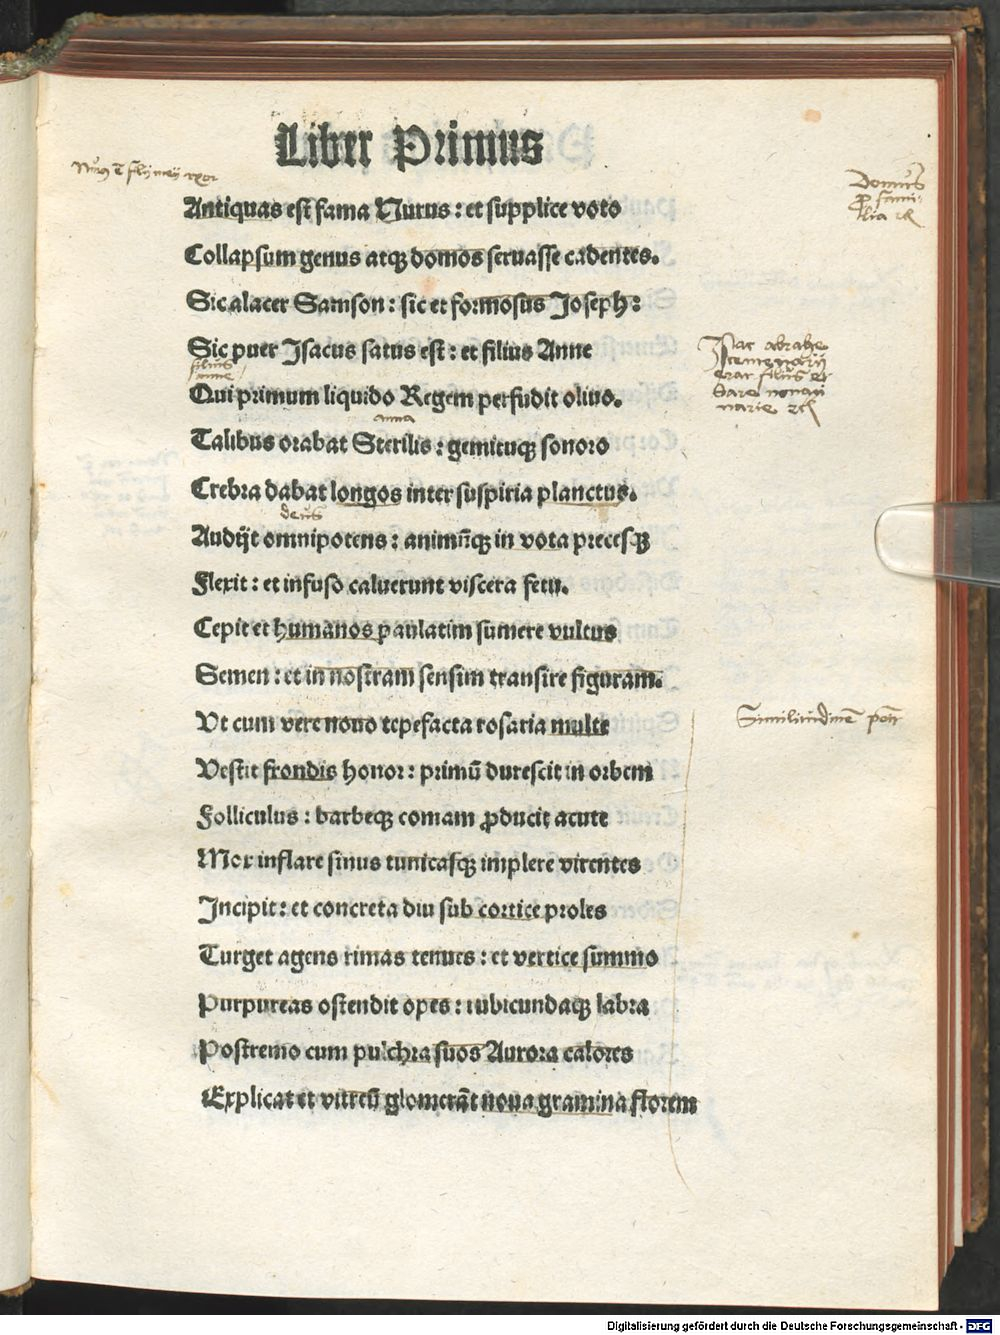 Liber Primus
Antiquas est fama Nurus : et supplice voto
Domus
ꝓ fami-
lia
Collapsum genus atqꝫ domos seruasse cadentes.
Sic alacer Samson : sic et formosus Joseph :
Sic puer Isacus satus est : et filius Anne
Isac abrahe
centenarij
erat filius et
Sare nonage
narie
filius
anne
Qui primum liquido Regem perfudit oliuo.
anna
Talibus orabat Sterilis : gemituqꝫ sonoro
Crebra dabat longos inter suspiria planctus.
deus
Audijt omnipotens : animūqꝫ in vota precesqꝫ
Flexit : et infuso caluerunt viscera fetu.
Cepit et humanos paulatim sumere vultus
Semen : et in nostram sensim transire figuram.
Ut cum vere nouo tepefacta rosaria multe
Similitudinē
Vestit frondis honor : primū durescit in orbem
Folliculus : barbeqꝫ comam ꝓducit acute
Mox inflare sinus tunicasqꝫ implere virentes
Incipit : et concreta diu sub cortice proles
Turget agens rimas tenues : et vertice summo
Purpureas ostendit opes : rubicundaqꝫ labra
Postremo cum pulchra suos Aurora calores
Explicat et vitreū glomerāt noua gramina florem
Digitalisierung gefördert durch die Deutsche Forschungsgemeinschaft - DFG